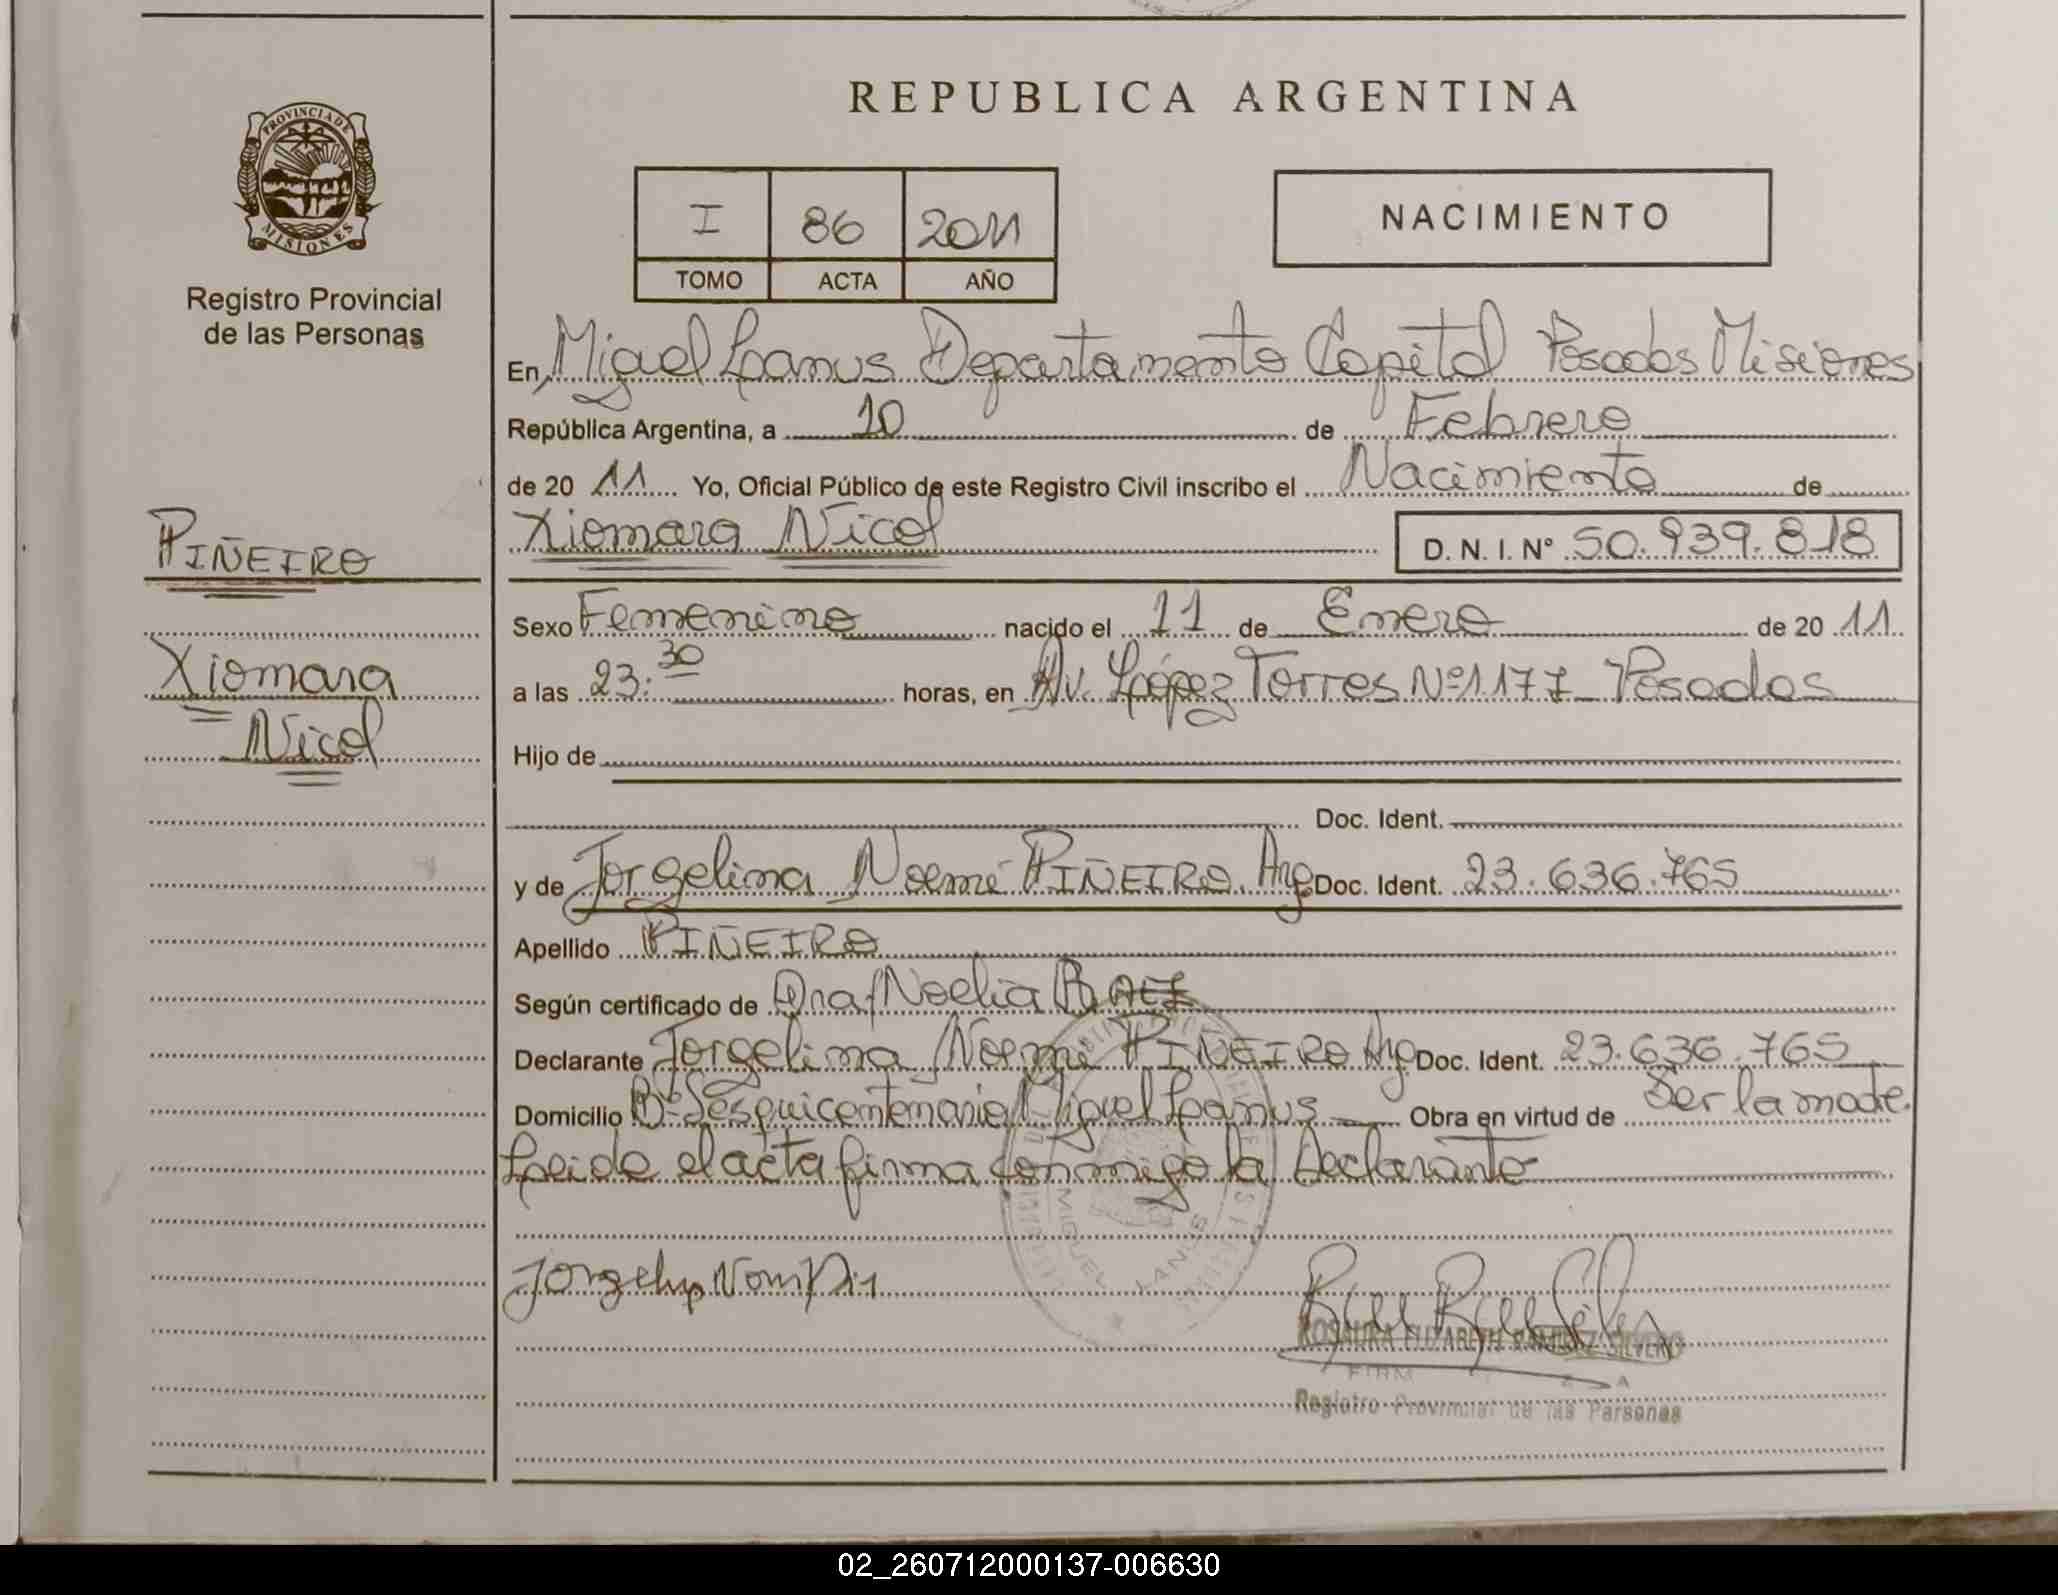 REPUBLICA ARGENTINA
PROVINCIA DE
MISIONES
Registro Provincial
de las Personas
I 86 2011
TOMO ACTA AÑO
NACIMIENTO
En, Miguel Lanus Departamento Capital Posadas Misiones
República Argentina, a 10 de Febrero
de 20 11 Yo, Oficial Público de este Registro Civil inscribo el Nacimiento de
Xiomara Nicol D. N. I. N° 50.939.818
PIÑEIRO
Xiomara
Nicol
Sexo Femenino nacido el 11 de Enero de 20 11
a las 23:30 horas, en Av. López Torres Nº 1177 Posadas
Hijo de
Doc. Ident.
y de Jorgelina Noemí PIÑEIRO. Arg Doc. Ident. 23.636.765
Apellido PIÑEIRO
Según certificado de Dra Noelia BAEZ
Declarante Jorgelina Noemí PIÑEIRO Arg Doc. Ident. 23.636.765
Domicilio Bº Sesquicentenario Miguel Lanus Obra en virtud de Ser la madre.
Leida el acta firma conmigo la Declarante
MIGUEL LANUS
ROSAURA ELIZABETH RAMIREZ SILVERO
Registro Provincial de las Personas
02_260712000137-006630